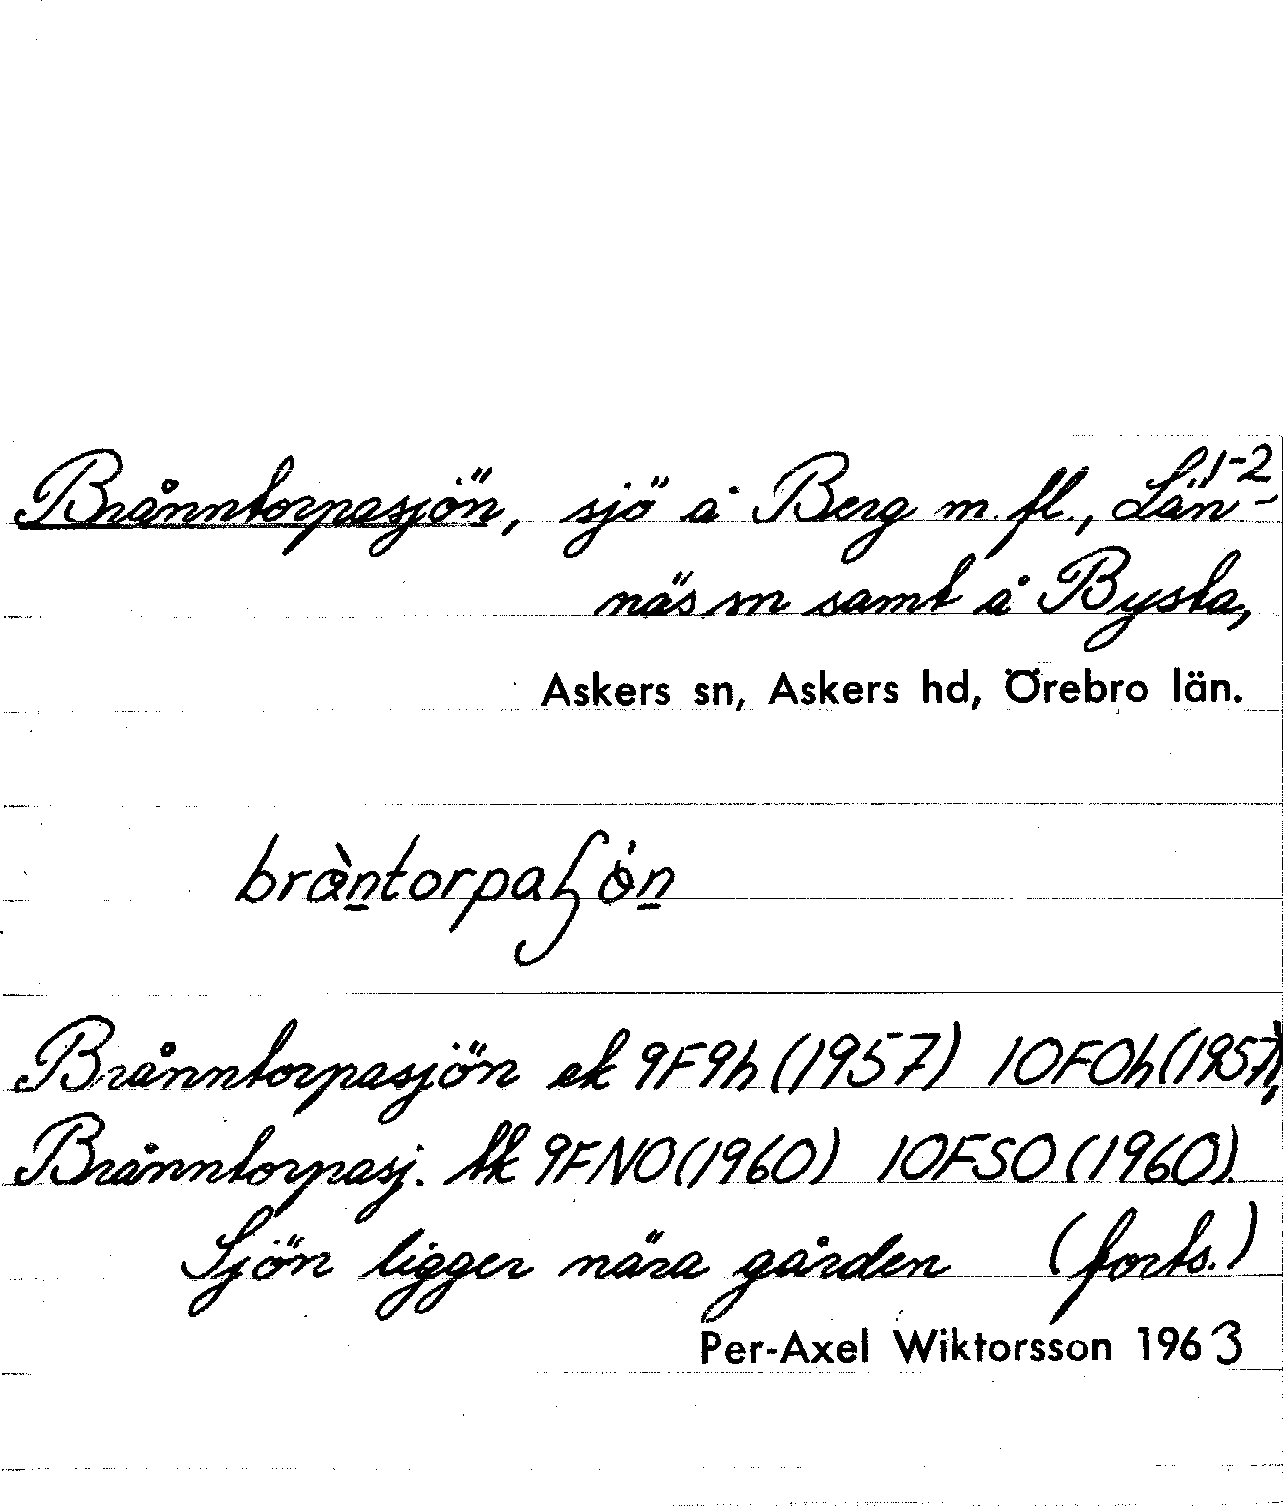 1-2
Brånntorpasjön, sjö å Berg m. fl., Län-
näs sn samt å Bysta,
Askers sn, Askers hd, Örebro län.
Brånntorpasjön ek 9F9h (1957) 10F0h (1957),
Brånntorpasj. tk 9FNO (1960) 10FSO (1960).
Sjön ligger nära gården (forts.)
Per-Axel Wiktorsson 1963